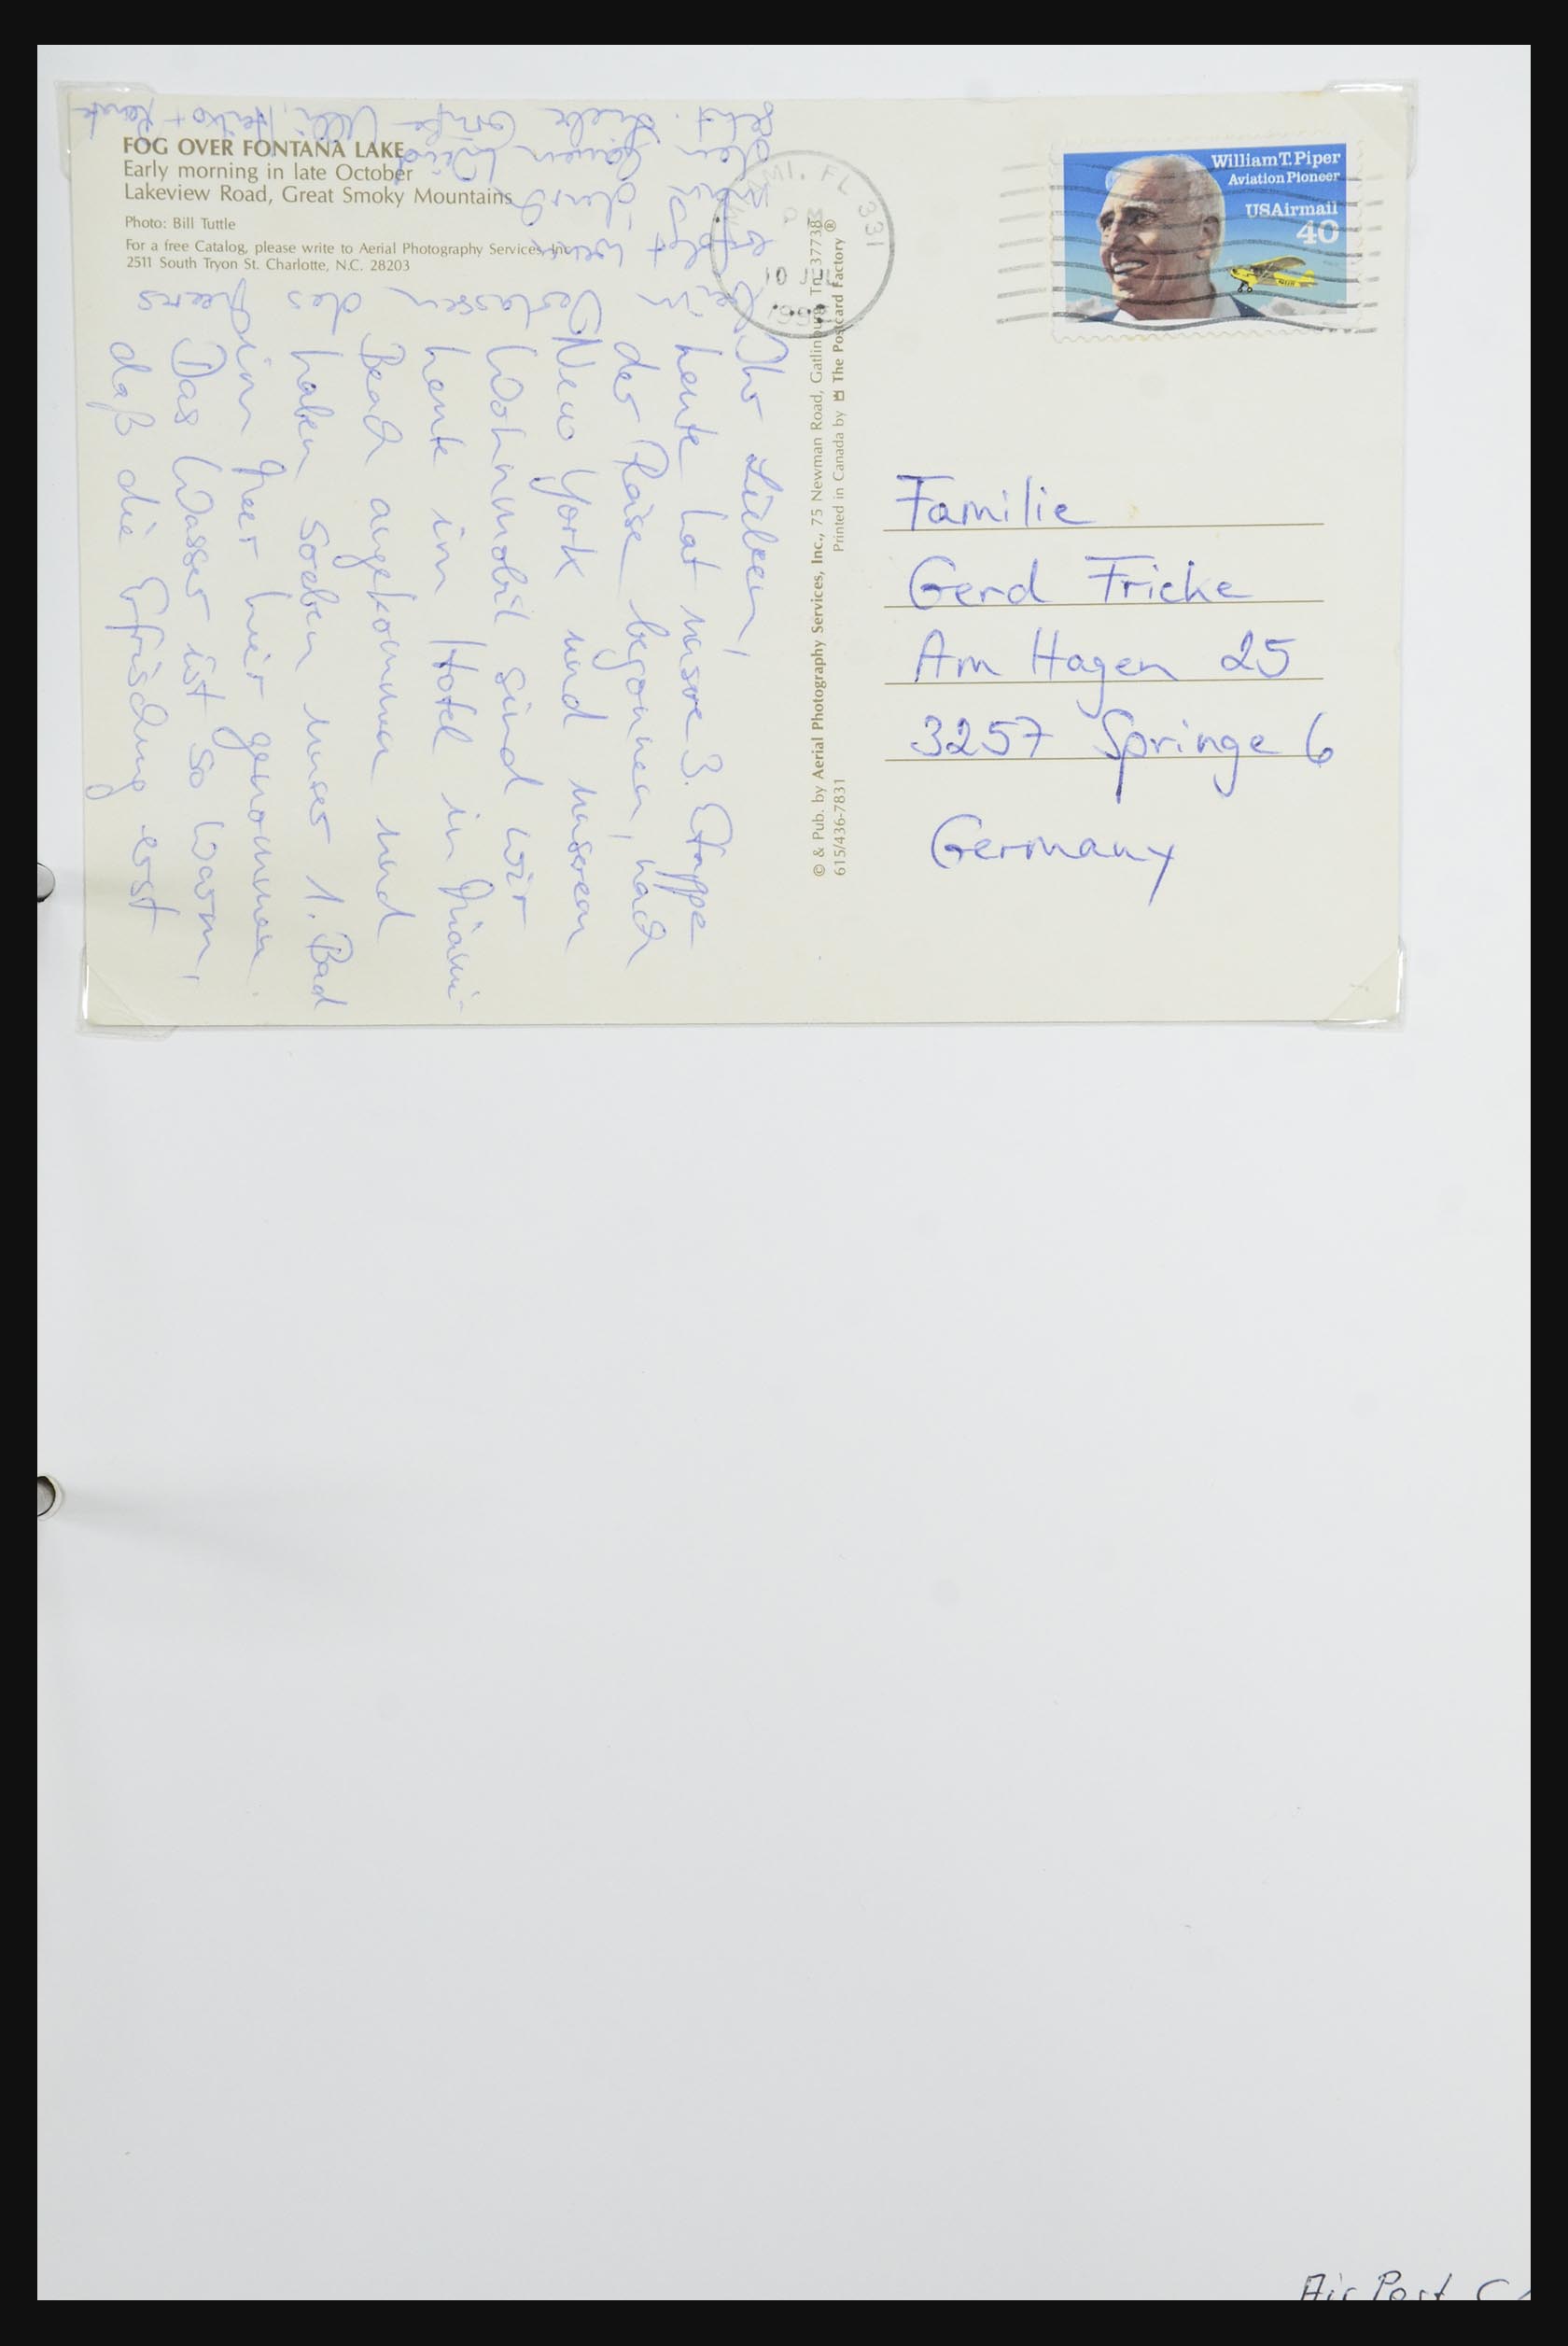 FOG OVER FONTANA LAKE
Early morning in late October
Lakeview Road, Great Smoky Mountains
Photo: Bill Tuttle
For a free Catalog, please write to Aerial Photography Services, Inc.
2511 South Tryon St. Charlotte, N.C. 28203
Ihr Lieben,
heute hat unsre 3. Etappe
der Reise begonnen, nach
New York und unserem
Wohnmobil sind wir
heute im Hotel in Miami-
Beach angekommen und
haben soeben unser 1. Bad
im Meer hier genommen.
Das Wasser ist so warm,
daß die Erfrischung erst
beim
Verlassen
des
Meeres
erfolgt wenn
durch
den
Wind
geht. Liebe Grüße Ulli, Heiko + Renate
© & Pub. by Aerial Photography Services, Inc., 75 Newman Road, Gatlinburg, Tn. 37738
615/436-7831
Printed in Canada by The Postcard Factory ®
MIAMI, FL 331
10 JUL
William T. Piper
Aviation Pioneer
USAirmail
40
Familie
Gerd Fricke
Am Hagen 25
3257 Springe 6
Germany
Air Post